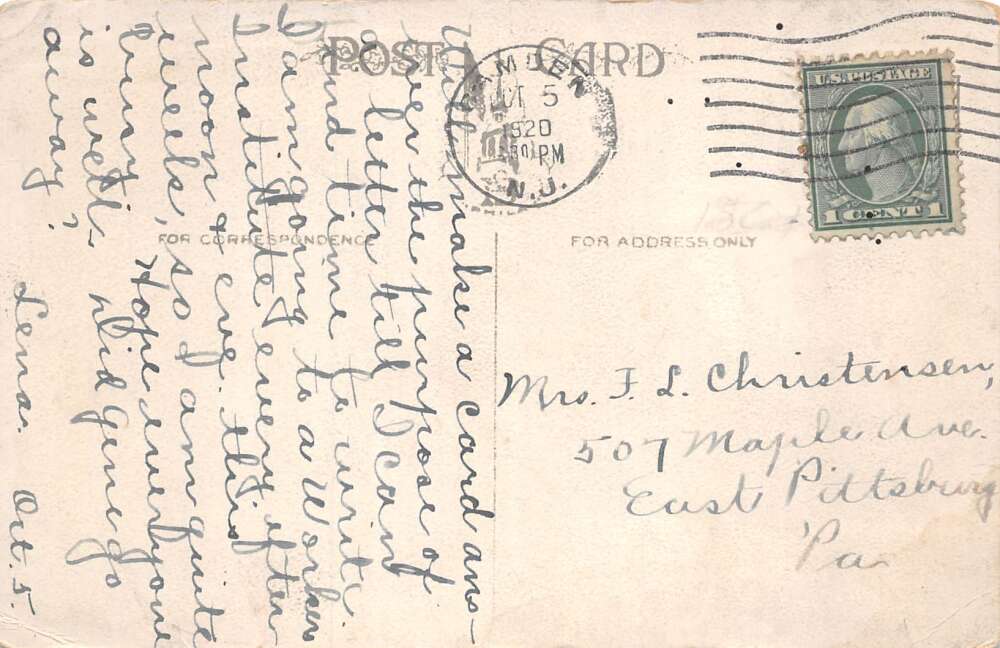 POST CARD
CAMDEN
OCT 5
1920
30 PM
N.J.
U.S. POSTAGE
1 CENT 1
FOR CORRESPONDENCE
FOR ADDRESS ONLY
Will make a card ans-
wer the purpose of
a letter till I can
find time to write.
I am going to a Workers
Institute every after
noon & eve. this
week, so I am quite
busy. Hope everyone
is well. Did Gene go
away?
Lena. Oct. 5.
Mrs. F. L. Christensen,
507 Maple Ave.
East Pittsburg
Pa.